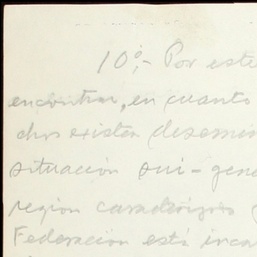 10º,- Por este
encontrar, en cuanto
chos existen desemi
situación sui-gene
región caracterizó
Federación está inca